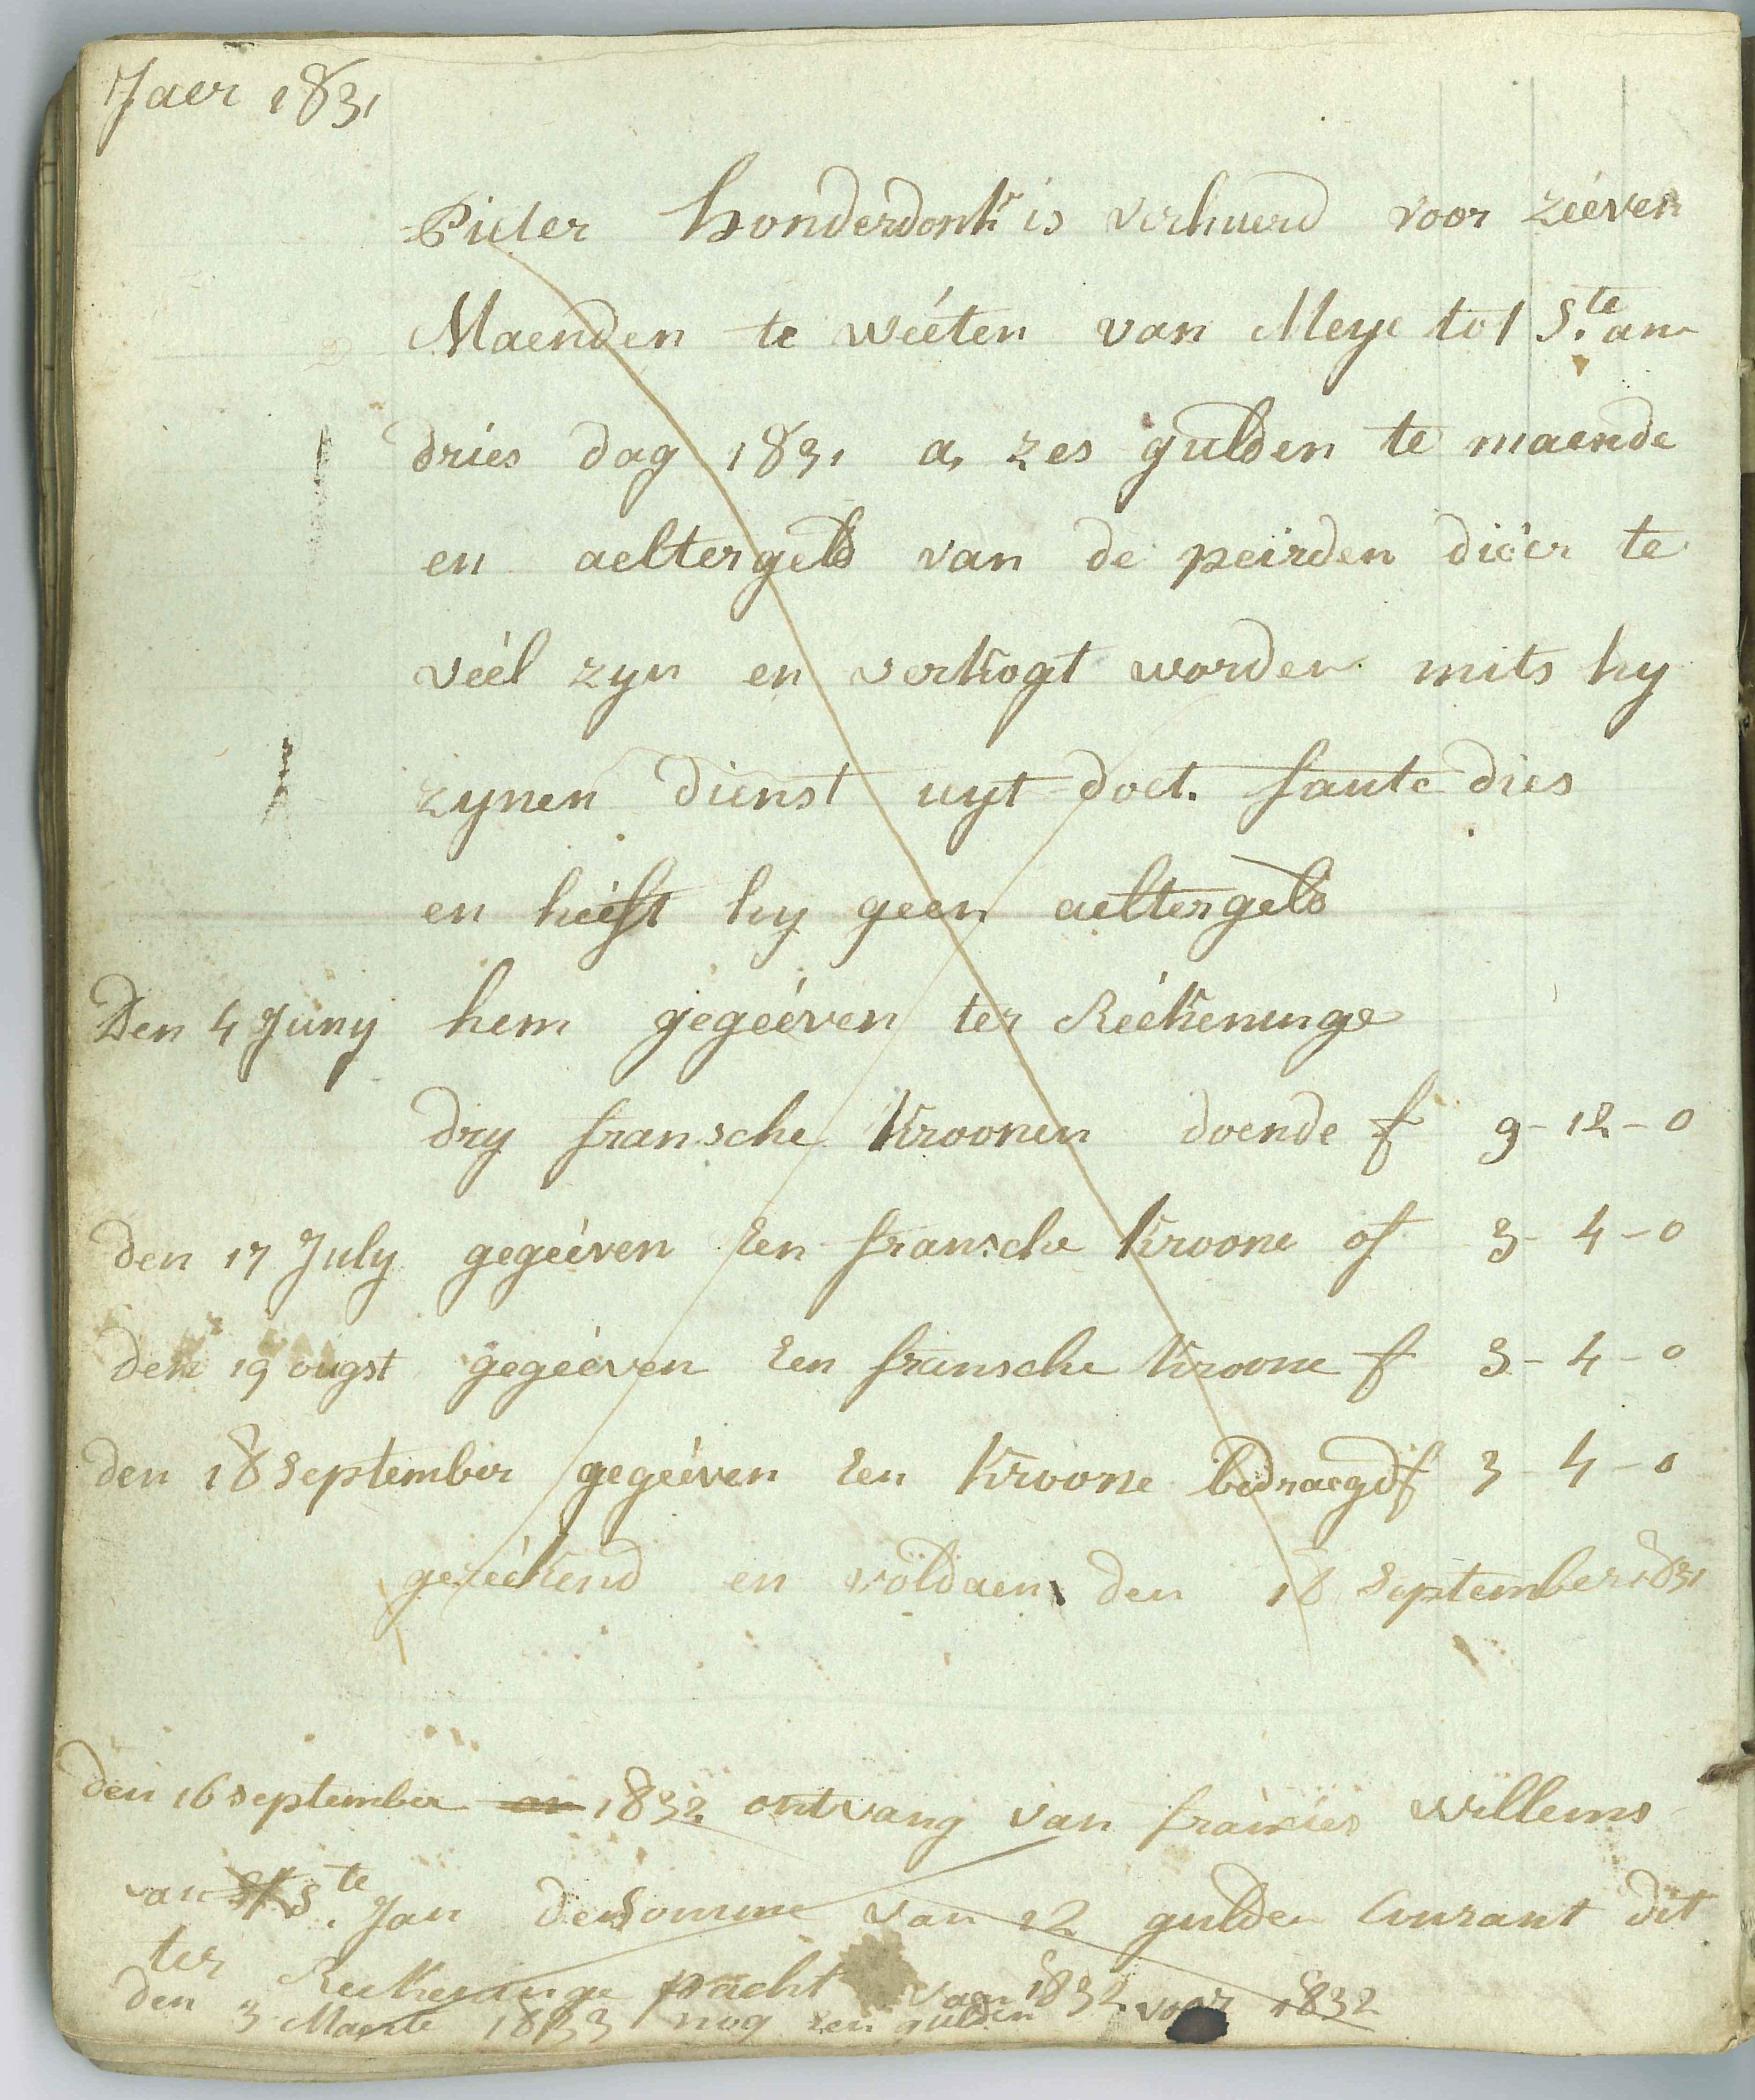 Jaer 1831
Pieter Honderdonk is verhuerd voor zéeven
Maenden te wéeten van Meye tot Ste an
dries dag 1831 a zes gulden te maende
en aeltergeld van de peirden diëer te
véel zyn en verkogt worden mits hy
zynen dienst uyt doet. faute dies
en héeft hy geen aeltergeld
Den 4 Juny hem gegéeven ter Réekeninge
dry fransche Kroonen doende f 9-12-0
den 17 July gegéeven een fransche Kroone of 3-4-0
den 19 ougst gegéeven een fransche Kroone f 3-4-0
den 18 September gegéeven een Kroone bedraegd f 3-4-0
geréekend en voldaen den 18 September 1831
den 16 september 1832 ontvang van francies Willems
van Ste Jan de Somme van 12 gulden Courant dit
ter Reekeninge pacht van 1832 voor 1832
den 3 Maerte 1833 nog een gulden